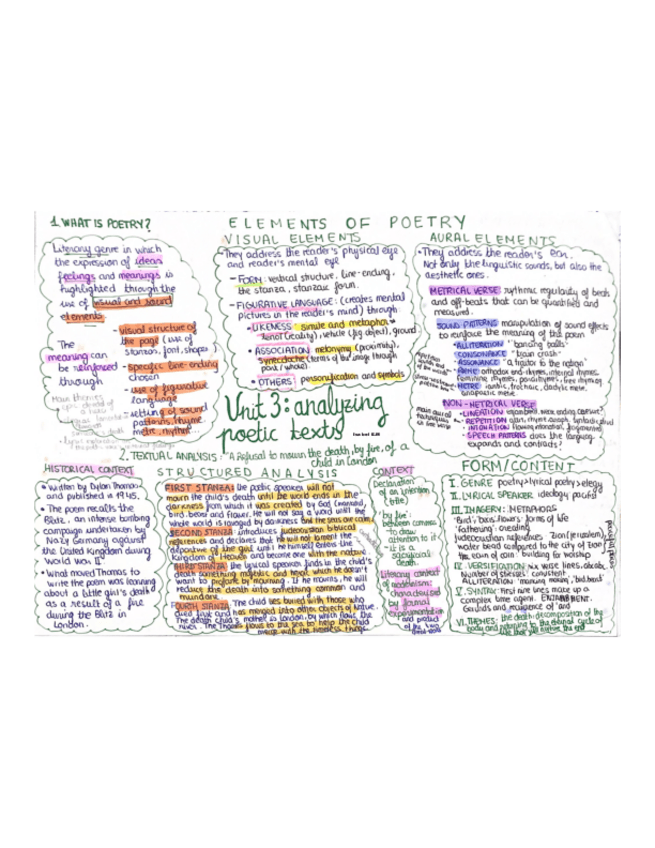 1. WHAT IS POETRY?
Literary genre in which
the expression of ideas
feelings and meanings is
highlighted through the
use of visual and sound
elements
The
meaning can
be reinforced
through
- visual structure of
the page (use of
stanzas, font, shapes
- specific line-ending
chosen
- use of figurative
language
- setting of sound
patterns, rhyme
metre, rhythm
ELEMENTS OF POETRY
VISUAL ELEMENTS
- They address the reader's physical eye
and reader's mental eye
- FORM: vertical structure, line-ending,
the stanza, stanzaic form.
- FIGURATIVE LANGUAGE: (creates mental
pictures in the reader's mind) through
• LIKENESS: simile and metaphor
tenor (reality), vehicle (fig object), ground
• ASSOCIATION: metonymy (proximity),
synecdoche (terms of an image through
part/whole)
• OTHERS: personification and symbols
Unit 3: analyzing
poetic texts
AURAL ELEMENTS
• They address the reader's ear.
Not only the linguistic sounds, but also the
aesthetic ones.
METRICAL VERSE: rythmic regularity of beats
and off-beats that can be quantified and
measured.
SOUND PATTERNS: manipulation of sound effects
to reinforce the meaning of the poem
- ALLITERATION "bouncing balls"
- CONSONANCE "brain crash"
- ASSONANCE "a traitor to the nation"
NON-METRICAL VERSE:
- SPEECH PATTERNS does the language
expands and contracts?
2. TEXTUAL ANALYSIS: "A Refusal to mourn the death, by fire, of a
child in London
HISTORICAL CONTEXT
• Written by Dylan Thomas
and published in 1945.
• The poem recalls the
Blitz, an intense bombing
campaign undertaken by
Nazy Germany against
the United Kingdom during
World War II
• What moved Thomas to
write the poem was learning
about a little girl's death
as a result of a fire
during the Blitz in
London.
STRUCTURED ANALYSIS
FIRST STANZA: the poetic speaker will not
mourn the child's death until the world ends in the
darkness from which it was created by God (mankind,
bird, beast and flower. He will not say a word until the
whole world is ravaged by darkness and the seas are calm
SECOND STANZA: introduces judeocristian biblical
references and declares that he will not lament the
departure of the girl until he himself enters the
Kingdom of Heaven and become one with the nature
THIRD STANZA: the lyrical speaker finds in the child's
death something majestic and regal, which he doesn't
want to profane by mourning. If he mourns, he will
reduce the death into something common and
mundane.
FOURTH STANZA: The child lies buried with those who
died first and has merged into other objects of nature.
The death's mother is London, by which flows the
river. The Thames flows to the sea to help the child
merge with the lifeless things
CONTEXT
Declaration
of an intention
(title)
'by fire'
between commas
to draw
attention to it
it is a
sacrificial
death.
Literary context
of modernism:
characterised
by formal
experimentation
and product
of the two
world-wars
FORM/CONTENT
I. GENRE poetry>lyrical poetry>elegy
II. LYRICAL SPEAKER ideology pacifist
III. IMAGERY: METAPHORS
'Bird, beast, flower': forms of life
'fathering': creating
judeocristian references Zion (Jerusalem)
water bead compared to the city of Zion
IV. VERSIFICATION
Number of stresses: consistent
V. SYNTAX: First nine lines make up a
complex time agent. ENJAMBMENT.
Gerunds and recurrence of 'and'
VI. THEMES: the death/decomposition of the
body and returning to the eternal cycle of